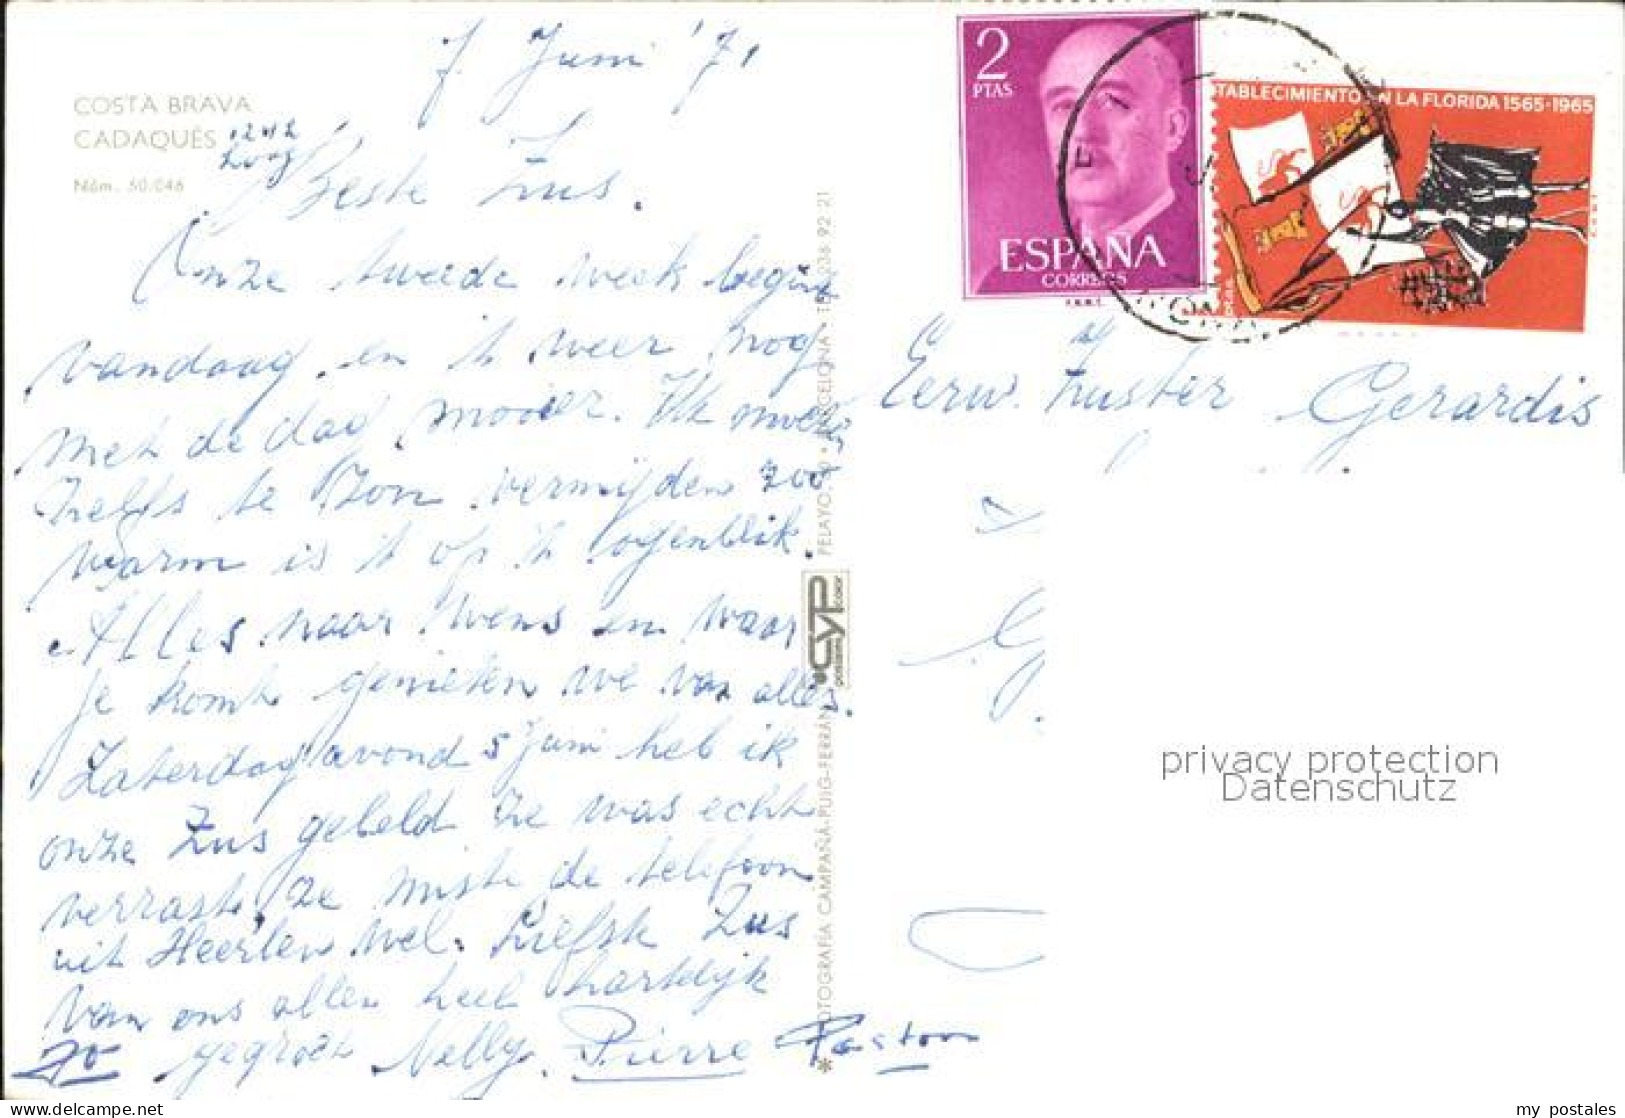 7 Juni '71
COSTA BRAVA
CADAQUÉS
Núm. 50.046
Beste Zus.
Onze tweede week begint
vandaag en 't weer nog
met de dag mooier. Ik moet
zelfs de zon vermijden zoo
warm is 't op 't ogenblik.
Alles naar wens en waar
je komt genieten we van alles.
Zaterdagavond 5 Juni heb ik
onze Zus gebeld ze was echt
verrast, ze miste de telefoon
uit Heerlen wel. Liefste Zus
van ons allen heel hartelijk
gegroet Nelly. Pierre Pastoor
Jo
FOTOGRAFÍA CAMPAÑÁ-PUIG-FERRÁN
CYP
PELAYO, BARCELONA · 236 92 21
2
PTAS
ESPAÑA
CORREOS
F.N.M.T.
TABLECIMIENTO EN LA FLORIDA 1565-1965
Eerw. Zuster Gerardis
privacy protection
Datenschutz
my postales
www.delcampe.net